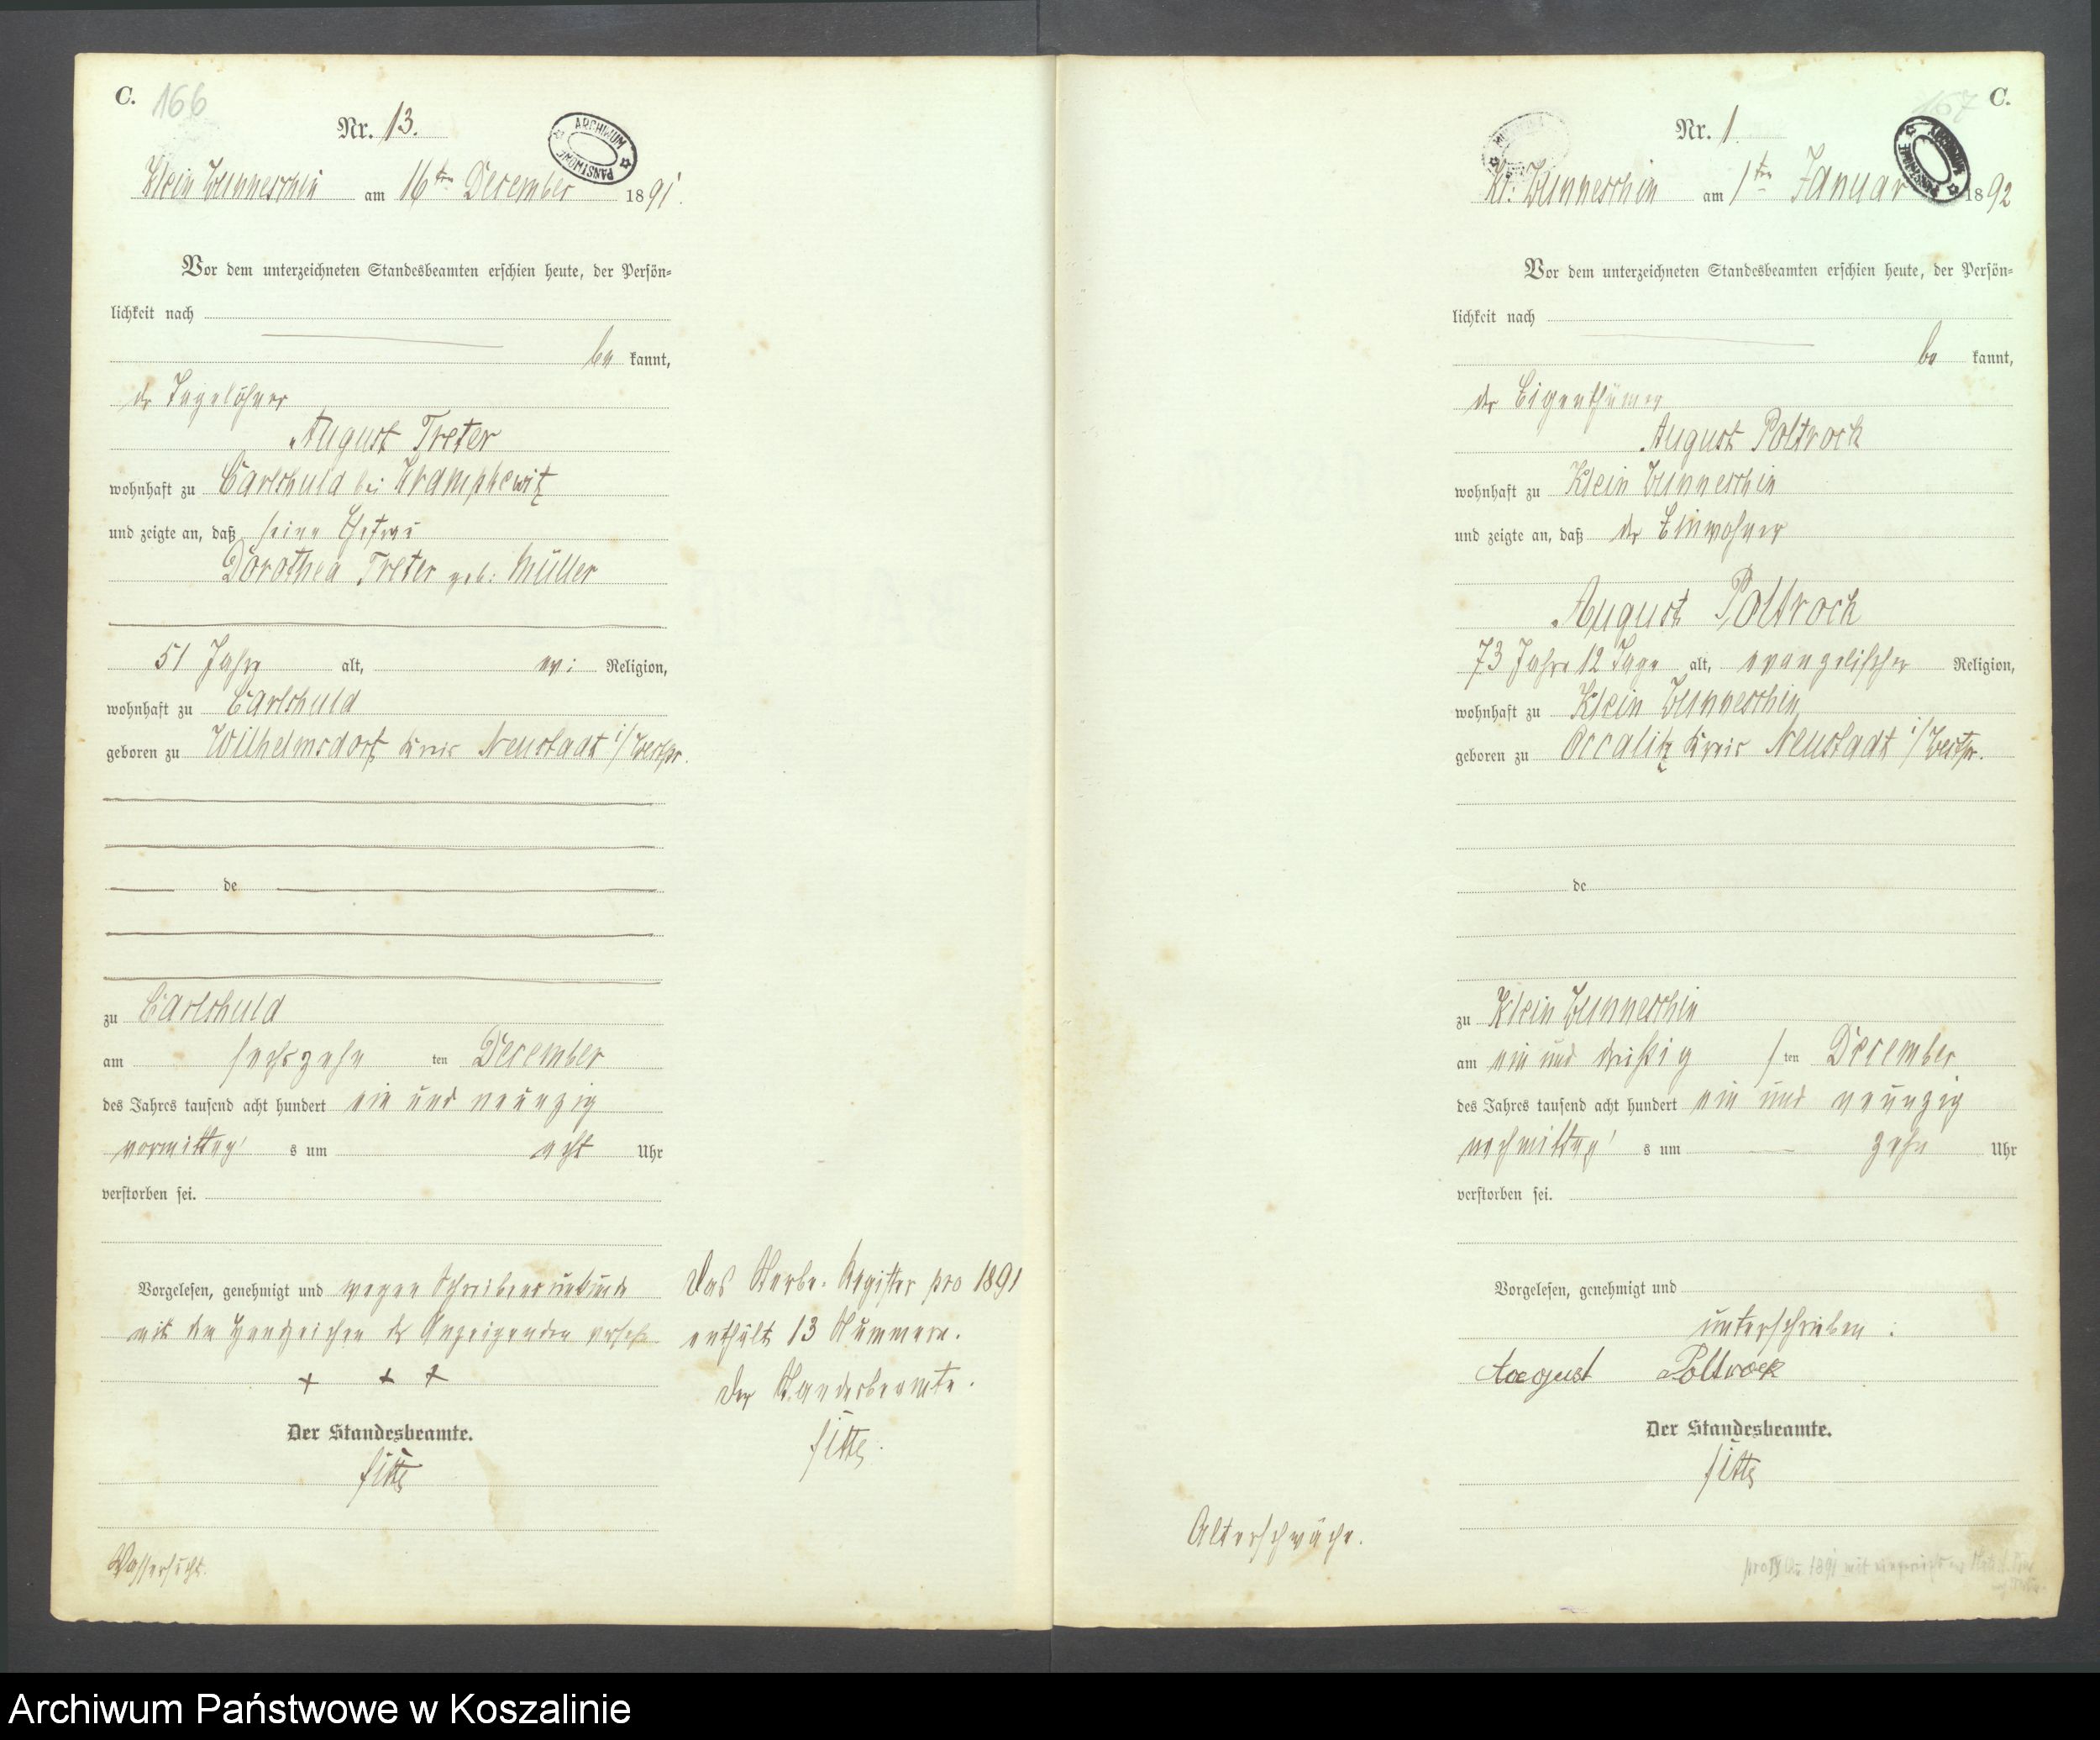 C. 166
Nr. 13.
ARCHIWUM PAŃSTWOWE
Klein Wunneschin am 16ten December 1891.
Vor dem unterzeichneten Standesbeamten erschien heute, der Persön-
lichkeit nach
be kannt,
der Tagelöhner
August Treter
wohnhaft zu Carlshuld bei Krampkewitz
und zeigte an, daß seine Ehefrau
Dorothea Treter geb: Müller
51 Jahre alt, ev: Religion,
wohnhaft zu Carlshuld
geboren zu Wilhelmsdorf Kreis Neustadt i/Westpr.
de
zu Carlshuld
am sechszehn ten December
des Jahres tausend acht hundert ein und neunzig
vormittag s um acht Uhr
verstorben sei.
Vorgelesen, genehmigt und wegen Schreibensunkunde
mit den Handzeichen des Anzeigenden versehen
+ + +
Der Standesbeamte.
Wassersucht.
Das Sterbe-Register pro 1891
enthält 13 Nummern.
Der Standesbeamte.
C.
157
Nr. 1.
ARCHIWUM PAŃSTWOWE
Kl. Wunneschin am 1ten Januar 1892
Vor dem unterzeichneten Standesbeamten erschien heute, der Persön-
lichkeit nach
be kannt,
der Eigenthümer
August Poltrock
wohnhaft zu Klein Wunneschin
und zeigte an, daß der Einwohner
August Poltrock
73 Jahre 12 Tage alt, evangelischer Religion,
wohnhaft zu Klein Wunneschin
geboren zu Occalitz Kreis Neustadt i/Westpr.
de
zu Klein Wunneschin
am ein und dreißig ten December
des Jahres tausend acht hundert ein und neunzig
nachmittag s um zehn Uhr
verstorben sei.
Vorgelesen, genehmigt und
unterschrieben:
August Poltrock
Der Standesbeamte.
Alterschwäche.
Archiwum Państwowe w Koszalinie